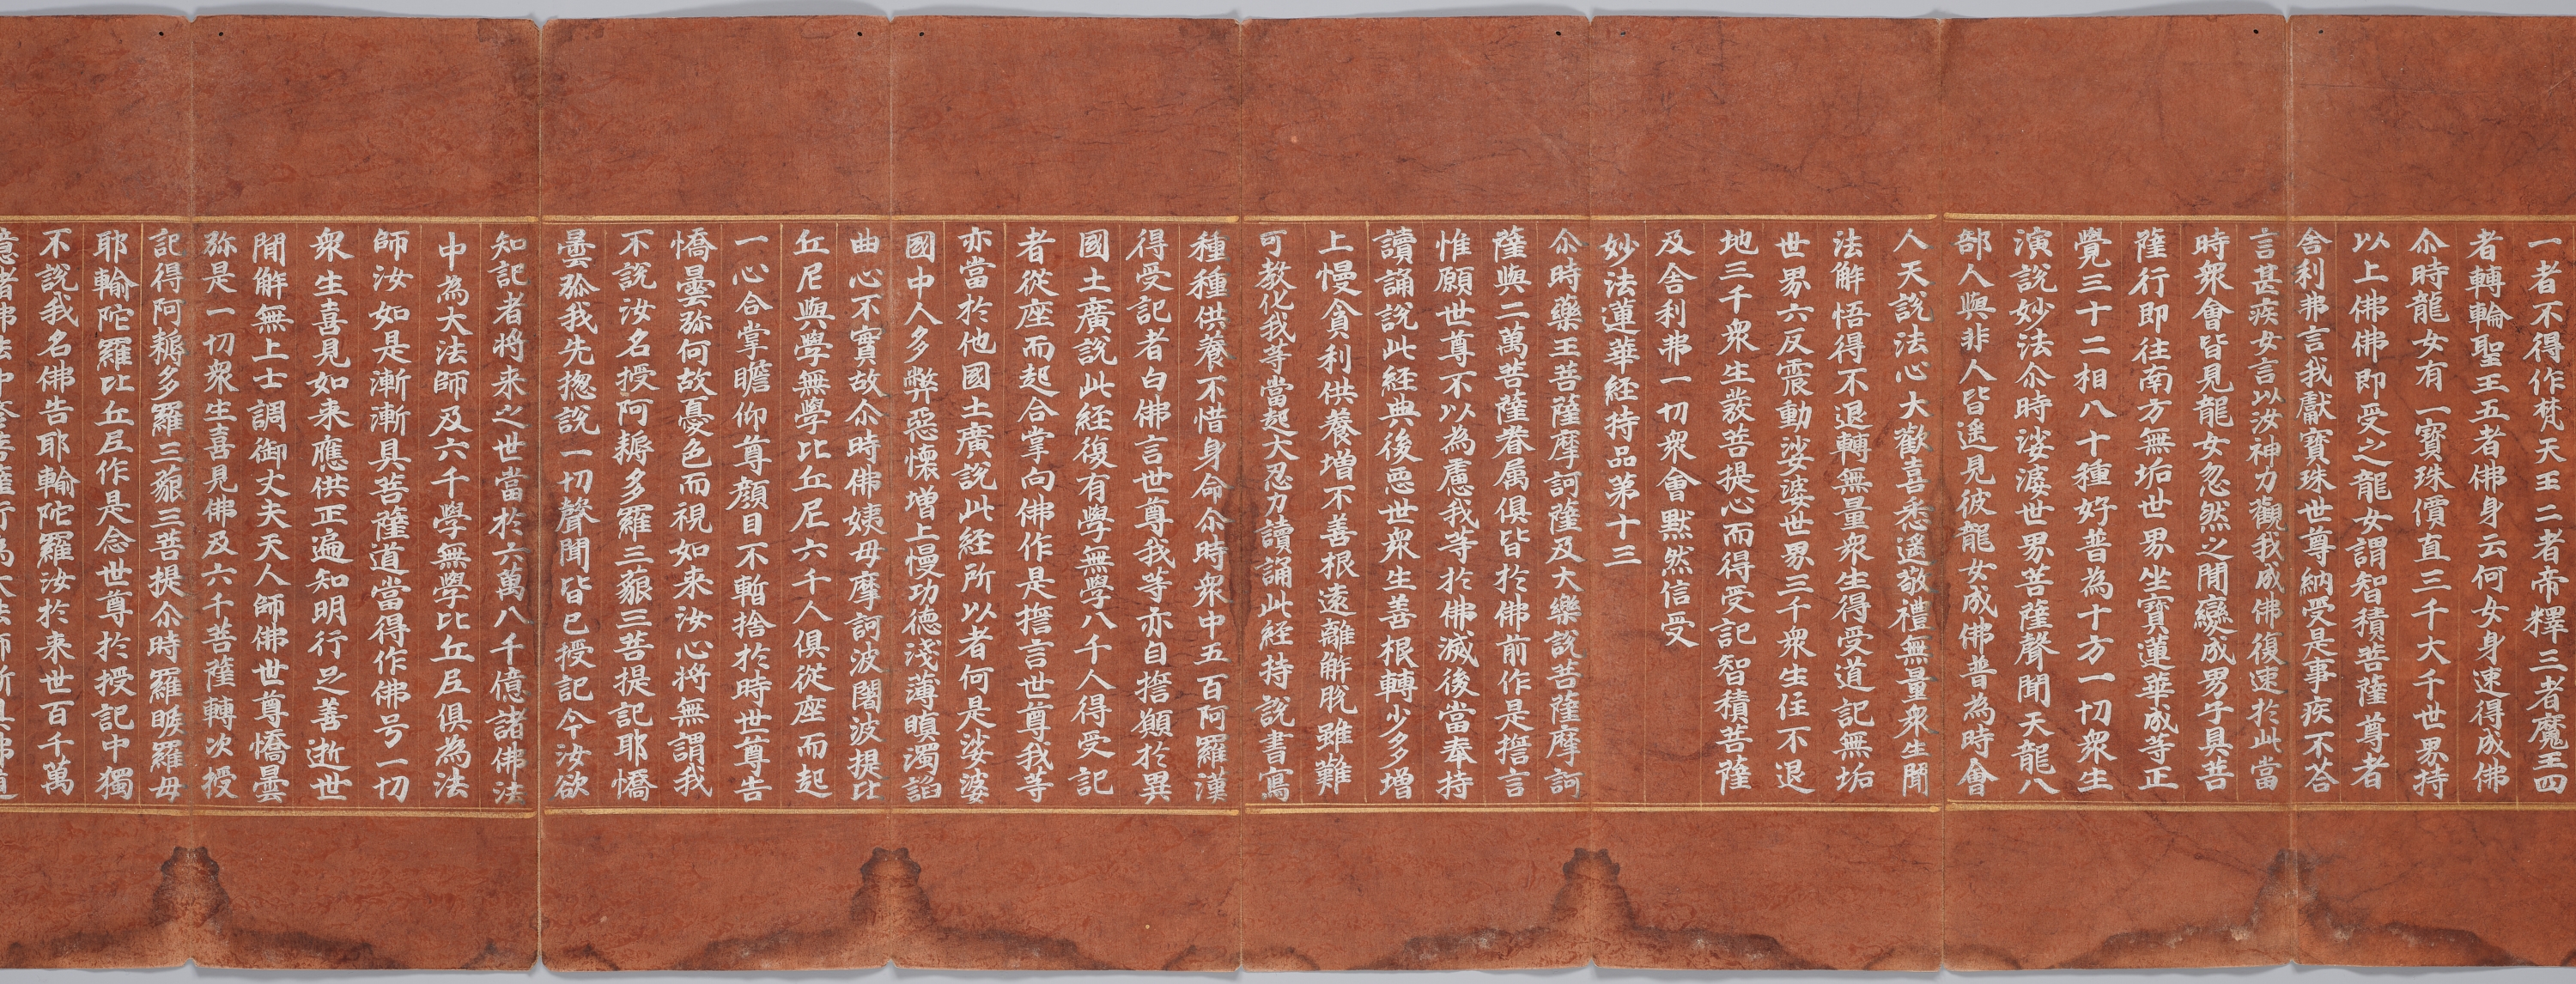 一者不得作梵天王二者帝釋三者魔王四
者轉輪聖王五者佛身云何女身速得成佛
尒時龍女有一寶珠價直三千大千世界持
以上佛佛即受之龍女謂智積菩薩尊者
舍利弗言我獻寶珠世尊納受是事疾不荅
言甚疾女言以汝神力觀我成佛復速於此當
時衆會皆見龍女忽然之間變成男子具菩
薩行即往南方無垢世界坐寶蓮華成等正
覺三十二相八十種好普為十方一切衆生
演說妙法尒時娑婆世界菩薩聲聞天龍八
部人與非人皆遙見彼龍女成佛普為時會
人天說法心大歡喜悉遙敬禮無量衆生聞
法解悟得不退轉無量衆生得受道記無垢
世界六反震動娑婆世界三千衆生住不退
地三千衆生發菩提心而得受記智積菩薩
及舍利弗一切衆會默然信受
妙法蓮華経持品第十三
尒時藥王菩薩摩訶薩及大樂說菩薩摩訶
薩與二萬菩薩眷属俱皆於佛前作是誓言
惟願世尊不以為慮我等於佛滅後當奉持
讀誦說此経典後惡世衆生善根轉少多增
上慢貪利供養增不善根遠離解脫雖難
可教化我等當起大忍力讀誦此経持說書寫
種種供養不惜身命尒時衆中五百阿羅漢
得受記者白佛言世尊我等亦自誓願於異
國土廣說此経復有學無學八千人得受記
者從座而起合掌向佛作是誓言世尊我等
亦當於他國土廣說此経所以者何是娑婆
國中人多弊惡懷增上慢功德淺薄瞋濁諂
曲心不實故尒時佛姨母摩訶波闍波提比
丘尼與學無學比丘尼六千人俱從座而起
一心合掌瞻仰尊顏目不暫捨於時世尊告
憍曇弥何故憂色而視如来汝心将無謂我
不說汝名授阿耨多羅三藐三菩提記耶憍
曇弥我先揔說一切聲聞皆已授記今汝欲
知記者将来之世當於六萬八千億諸佛法
中為大法師及六千學無學比丘尼俱為法
師汝如是漸漸具菩薩道當得作佛号一切
衆生喜見如来應供正遍知明行足善逝世
間解無上士調御丈夫天人師佛世尊憍曇
弥是一切衆生喜見佛及六千菩薩轉次授
記得阿耨多羅三藐三菩提尒時羅睺羅母
耶輸陀羅比丘尼作是念世尊於授記中獨
不說我名佛告耶輸陀羅汝於来世百千萬
億諸佛法中修菩薩行為大法師漸具佛道